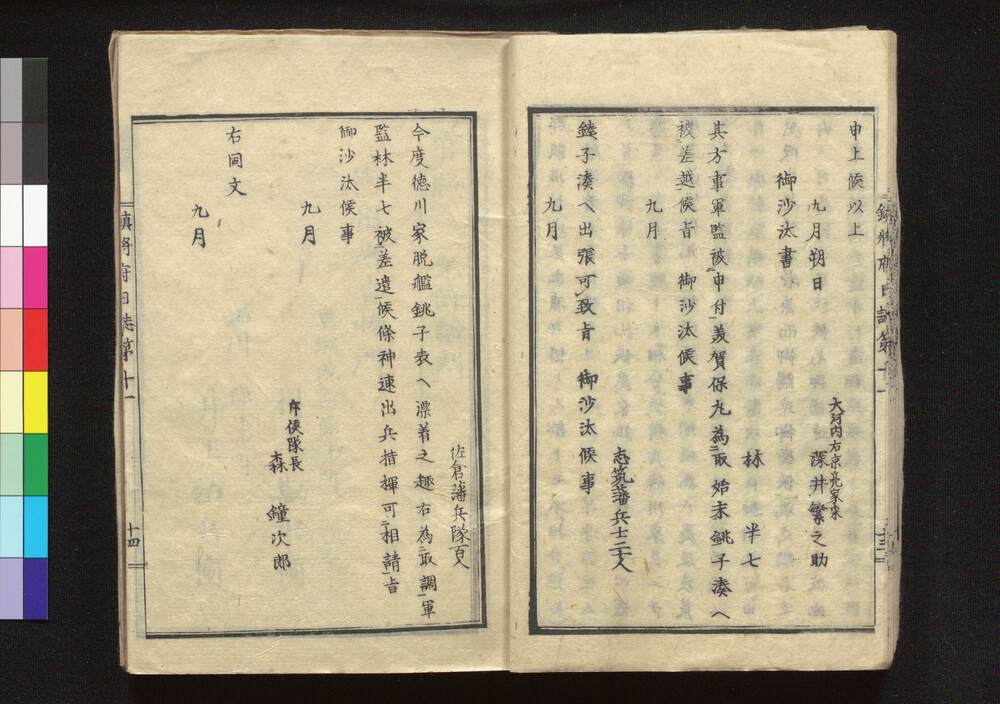 申上候以上
九月朔日
大河内右京亮家来
深井繁之助
御沙汰書
林半七
其方事軍監被申付美賀保丸為取始末銚子湊へ
被差越候旨御沙汰候事
九月
志筑藩兵士二十人
銚子湊へ出張可致旨御沙汰候事
九月
鎮将府日誌第十一
十三
佐倉藩兵隊百人
今度徳川家脱艦銚子表へ漂着之趣右為取調軍
監林半七被差遣候條神速出兵指揮可相請旨
御沙汰候事
九月
斥候隊長
森鐘次郎
右同文
九月
鎮将府日誌第十一
十四